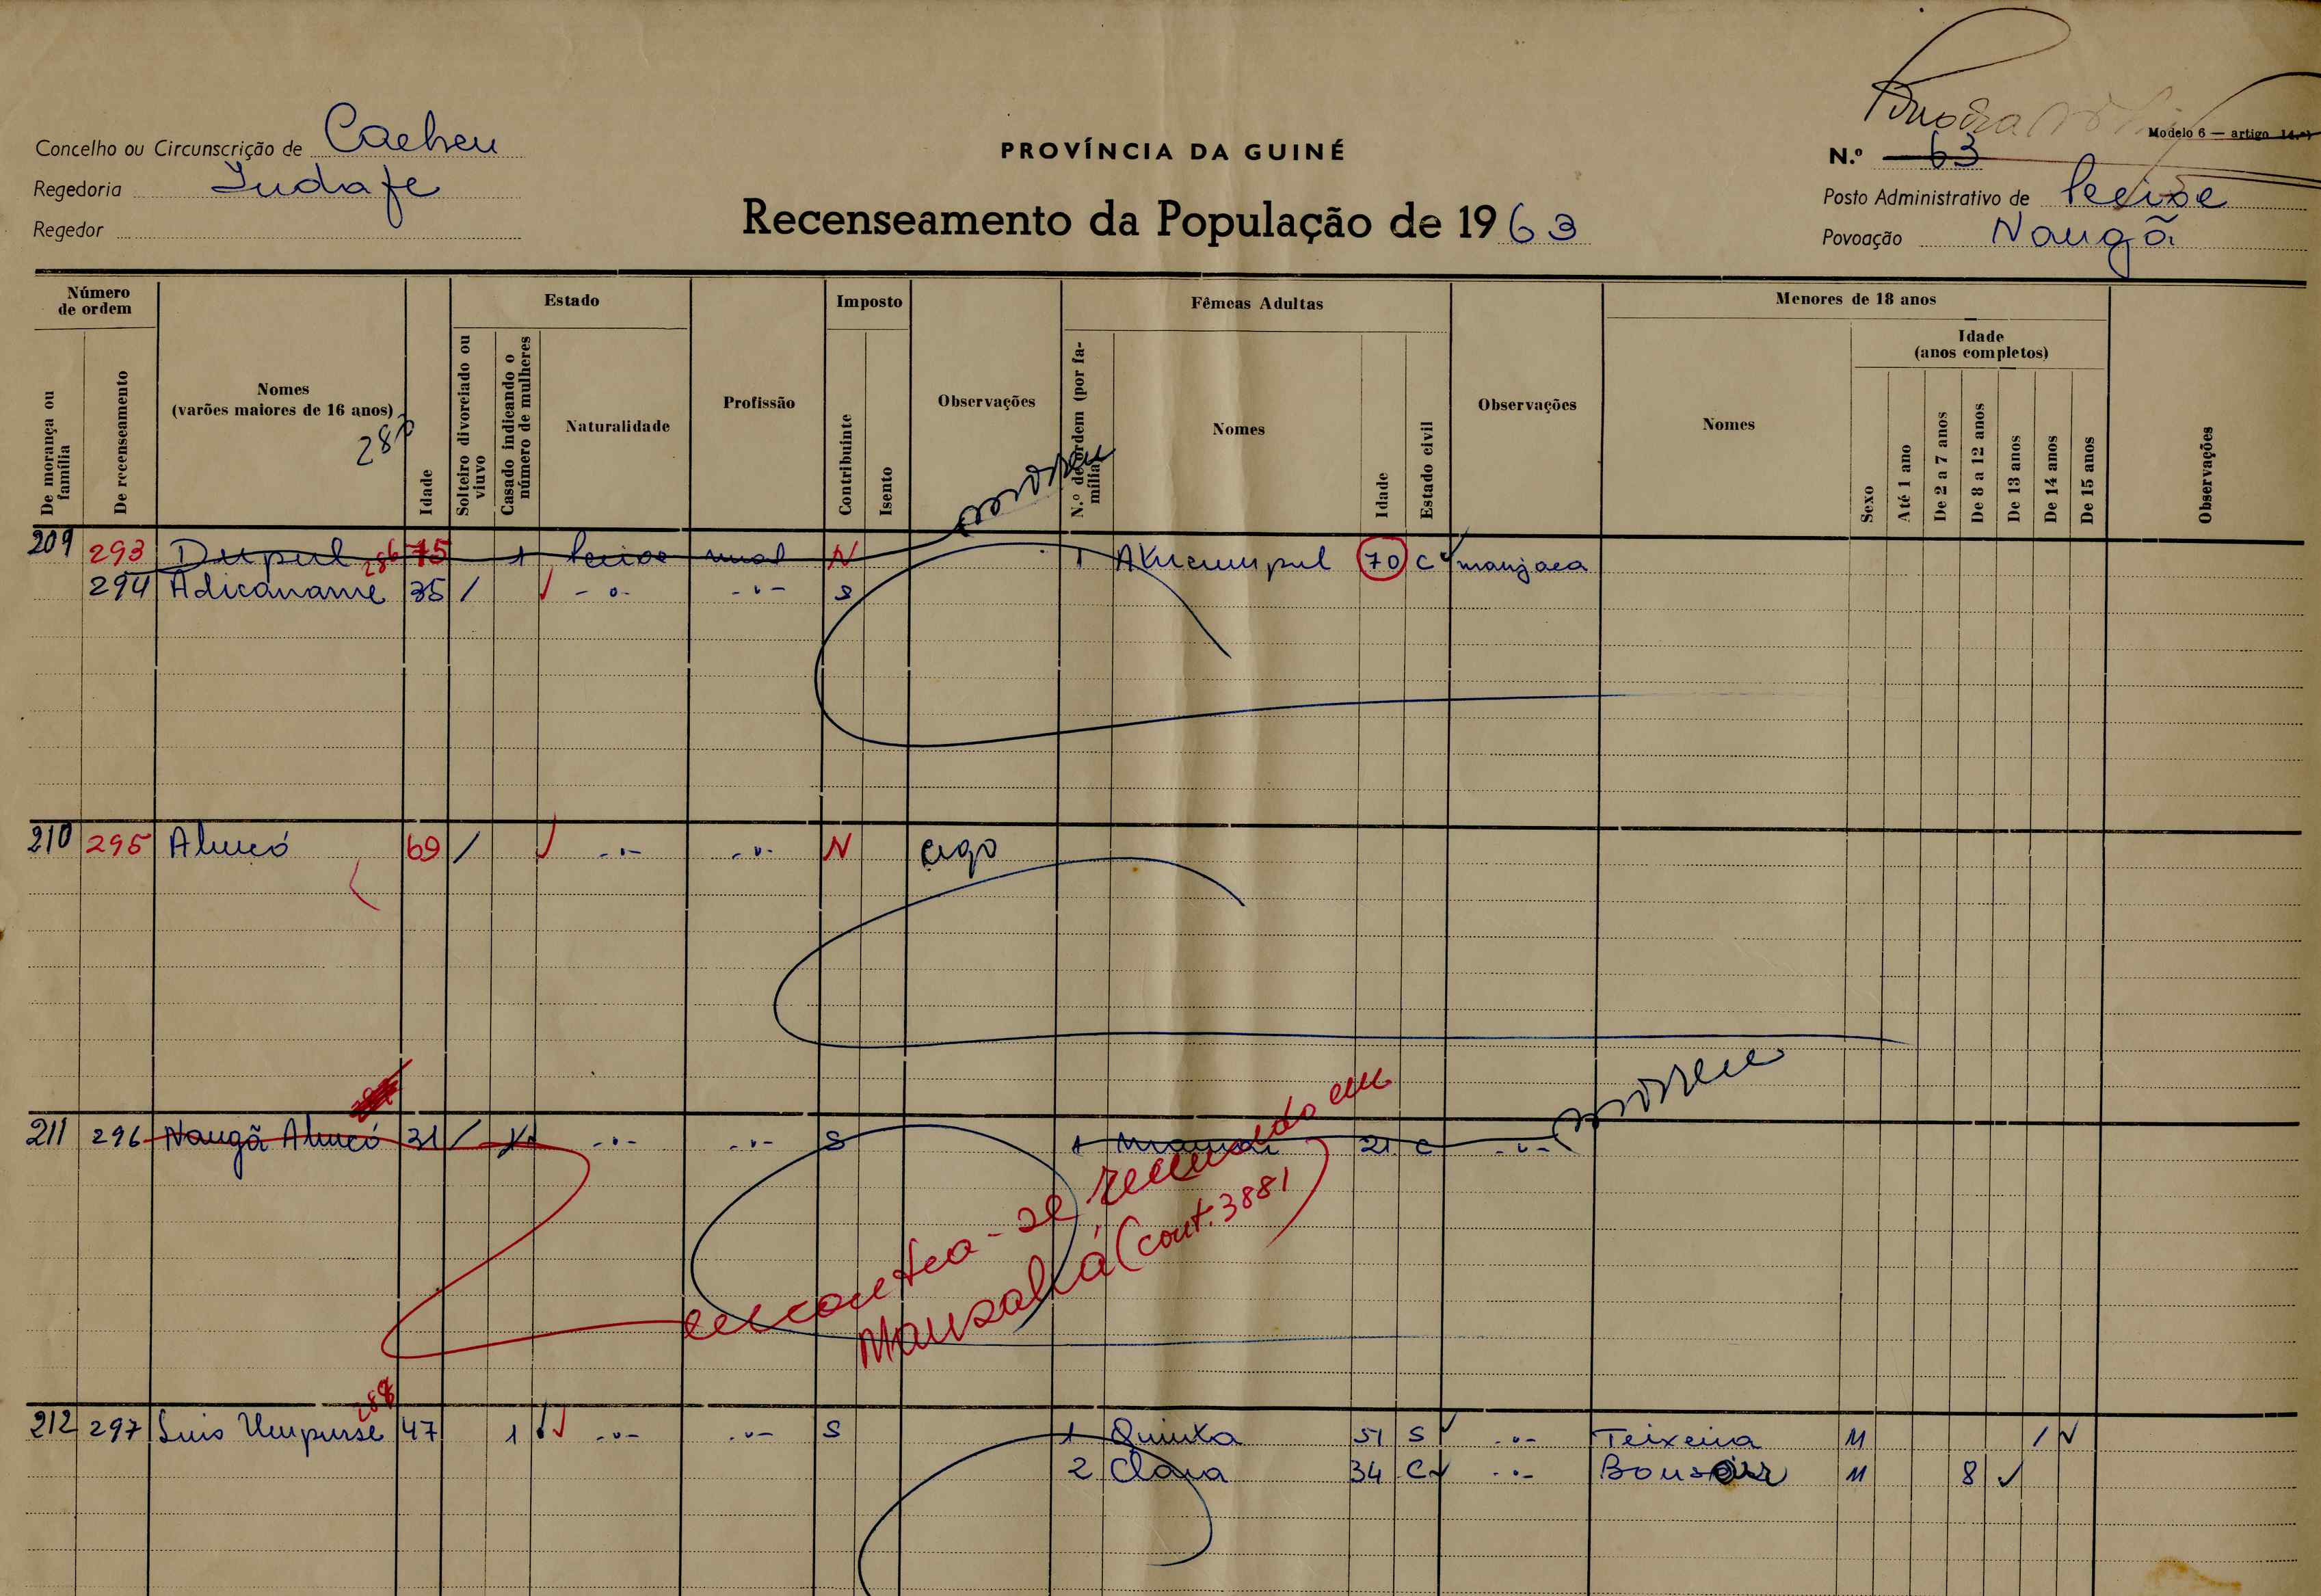 Modelo 6 — artigo 14.º)
Concelho ou Circunscrição de Cacheu
PROVÍNCIA DA GUINÉ
N.º 63
Regedoria
Recenseamento da População de 1963
Posto Administrativo de
Regedor
Povoação Naugã
Número de ordem
Estado
Imposto
Fêmeas Adultas
Menores de 18 anos
De morança ou família
De recenseamento
Nomes (varões maiores de 16 anos)
Idade
Solteiro divorciado ou viuvo
Casado indicando o número de mulheres
Naturalidade
Profissão
Contribuinte
Isento
Observações
N.º de ordem (por família)
Nomes
Idade
Estado civil
Observações
Nomes
Sexo
Idade (anos completos)
Até 1 ano
De 2 a 7 anos
De 8 a 12 anos
De 13 anos
De 14 anos
De 15 anos
Observações
morreu
209 293 Dupul 286 75 1 rural N 1 70 C manjaca
294 Adicaname 35 / - " - - " - S
210 295 69 / - " - - " - N cego
morreu
211 296 Naugã 31 / - " - - " - S 1 21 C - " -
encontra-se recenseado em
Mansabá (cont. 3881)
288
212 297 Luis Umpurse 47 1 - " - - " - S 1 Quinta 51 S - " - Teixeira M /
2 Clara 34 C - " - M 8